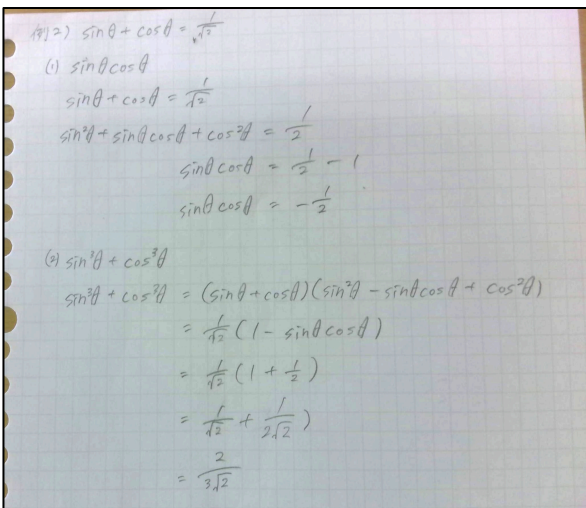 例2) sinθ + cosθ = 1/√2
(1) sinθcosθ
sinθ + cosθ = 1/√2
sin²θ + sinθcosθ + cos²θ = 1/2
sinθcosθ = 1/2 - 1
sinθcosθ = -1/2
(2) sin³θ + cos³θ
sin³θ + cos³θ = (sinθ + cosθ)(sin²θ - sinθcosθ + cos²θ)
= 1/√2 (1 - sinθcosθ)
= 1/√2 (1 + 1/2)
= 1/√2 + 1/2√2)
= 2/3√2